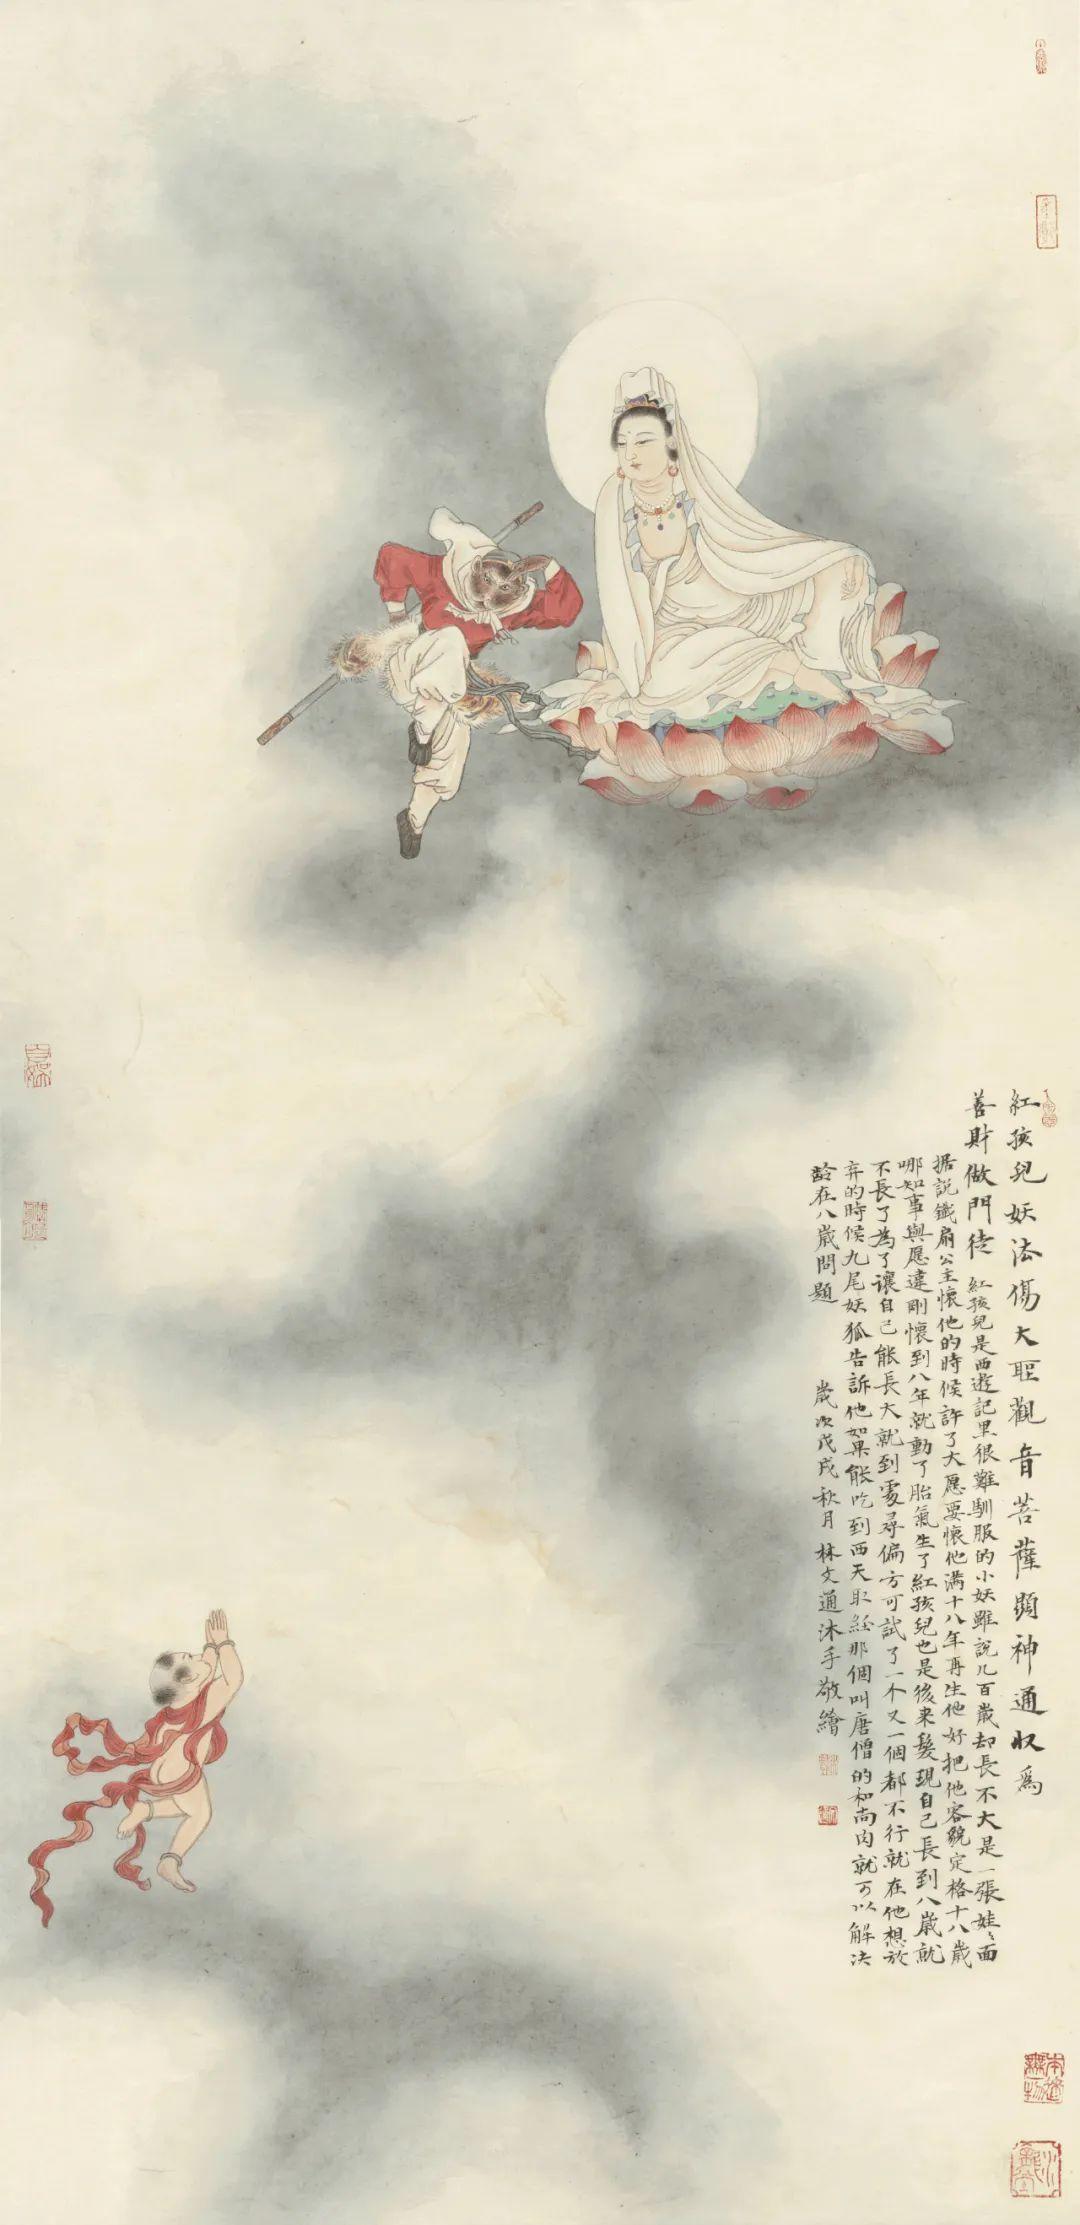 紅孩兒妖法傷大聖觀音菩薩顯神通收為
善財做門徒 紅孩兒是西遊記里很難馴服的小妖雖說几百歲却長不大是一張娃々面
据說鐵扇公主懷他的時候許了大愿要懷他满十八年再生他好把他容貌定格十八歲
哪知事與愿違剛懷到八年就動了胎氣生了紅孩兒也是後来髮現自己長到八歲就
不長了為了讓自己能長大就到處尋偏方可試了一个又一個都不行就在他想放
弃的時候九尾妖狐告訴他如果能吃到西天取經那個叫唐僧的和尚肉就可以解决
龄在八歲問題
歲次戊戌秋月林文通沐手敬繪
本來無一物